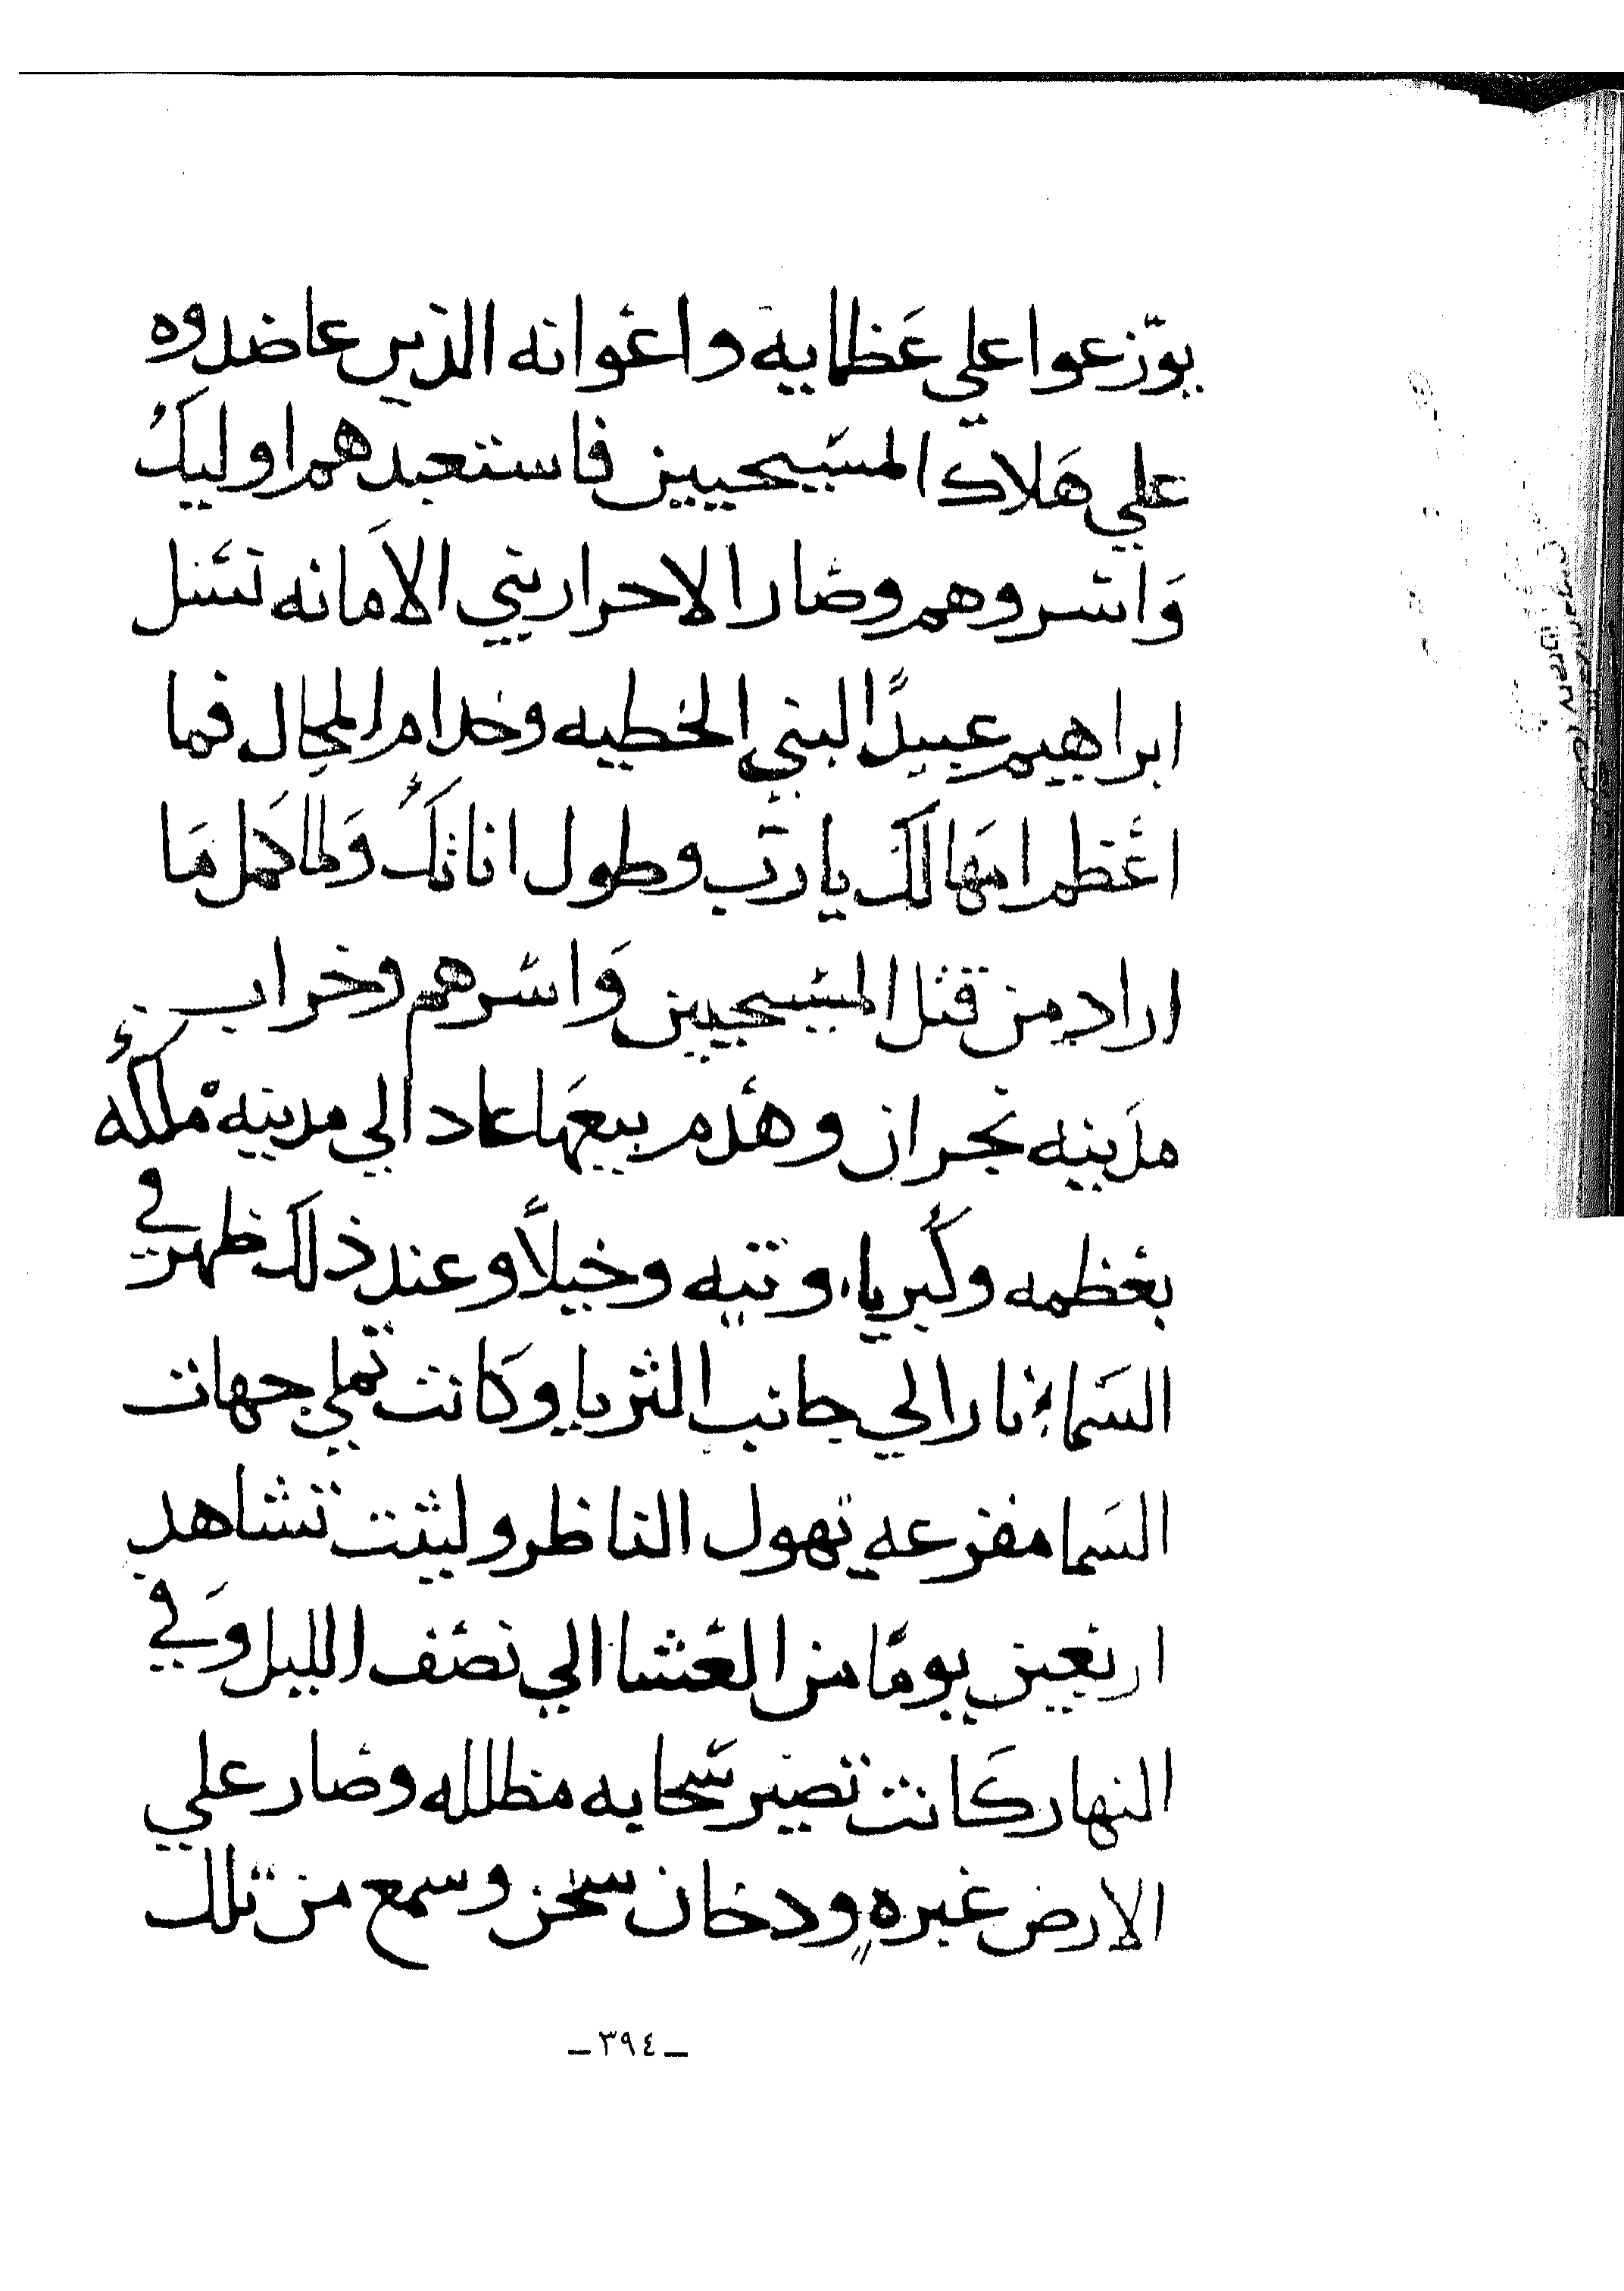 يوزعوا علي عظمايه واعوانه الذين عاضدوه
علي هلاك المسيحيين فاستعبدهم اوليك
واسروهم وصار الاحرار بني الامانه نسل
ابراهيم عبيدًا لبني الخطيه وخدام المحال فما
اعظم امهالك يا رب وطول اناتك ولما كمل ما
اراد من قتل المسيحيين واسرهم وخراب
مدينه نجران وهدم بيعها عاد الي مدينه ملكه
بعظمه وكبرياء وتيه وخيلاً وعند ذلك ظهر في
السماء نار الي جانب الثريا وكانت تملي جهات
السما مفزعه تهول الناظر ولبثت تشاهد
اربعين يومًا من العشا الي نصف الليل وفي
النهار كانت تصير سحابه مظلله وصار علي
الارض غبره ودخان سخن وسمع من تلك
ـ ٣٩٤ ـ